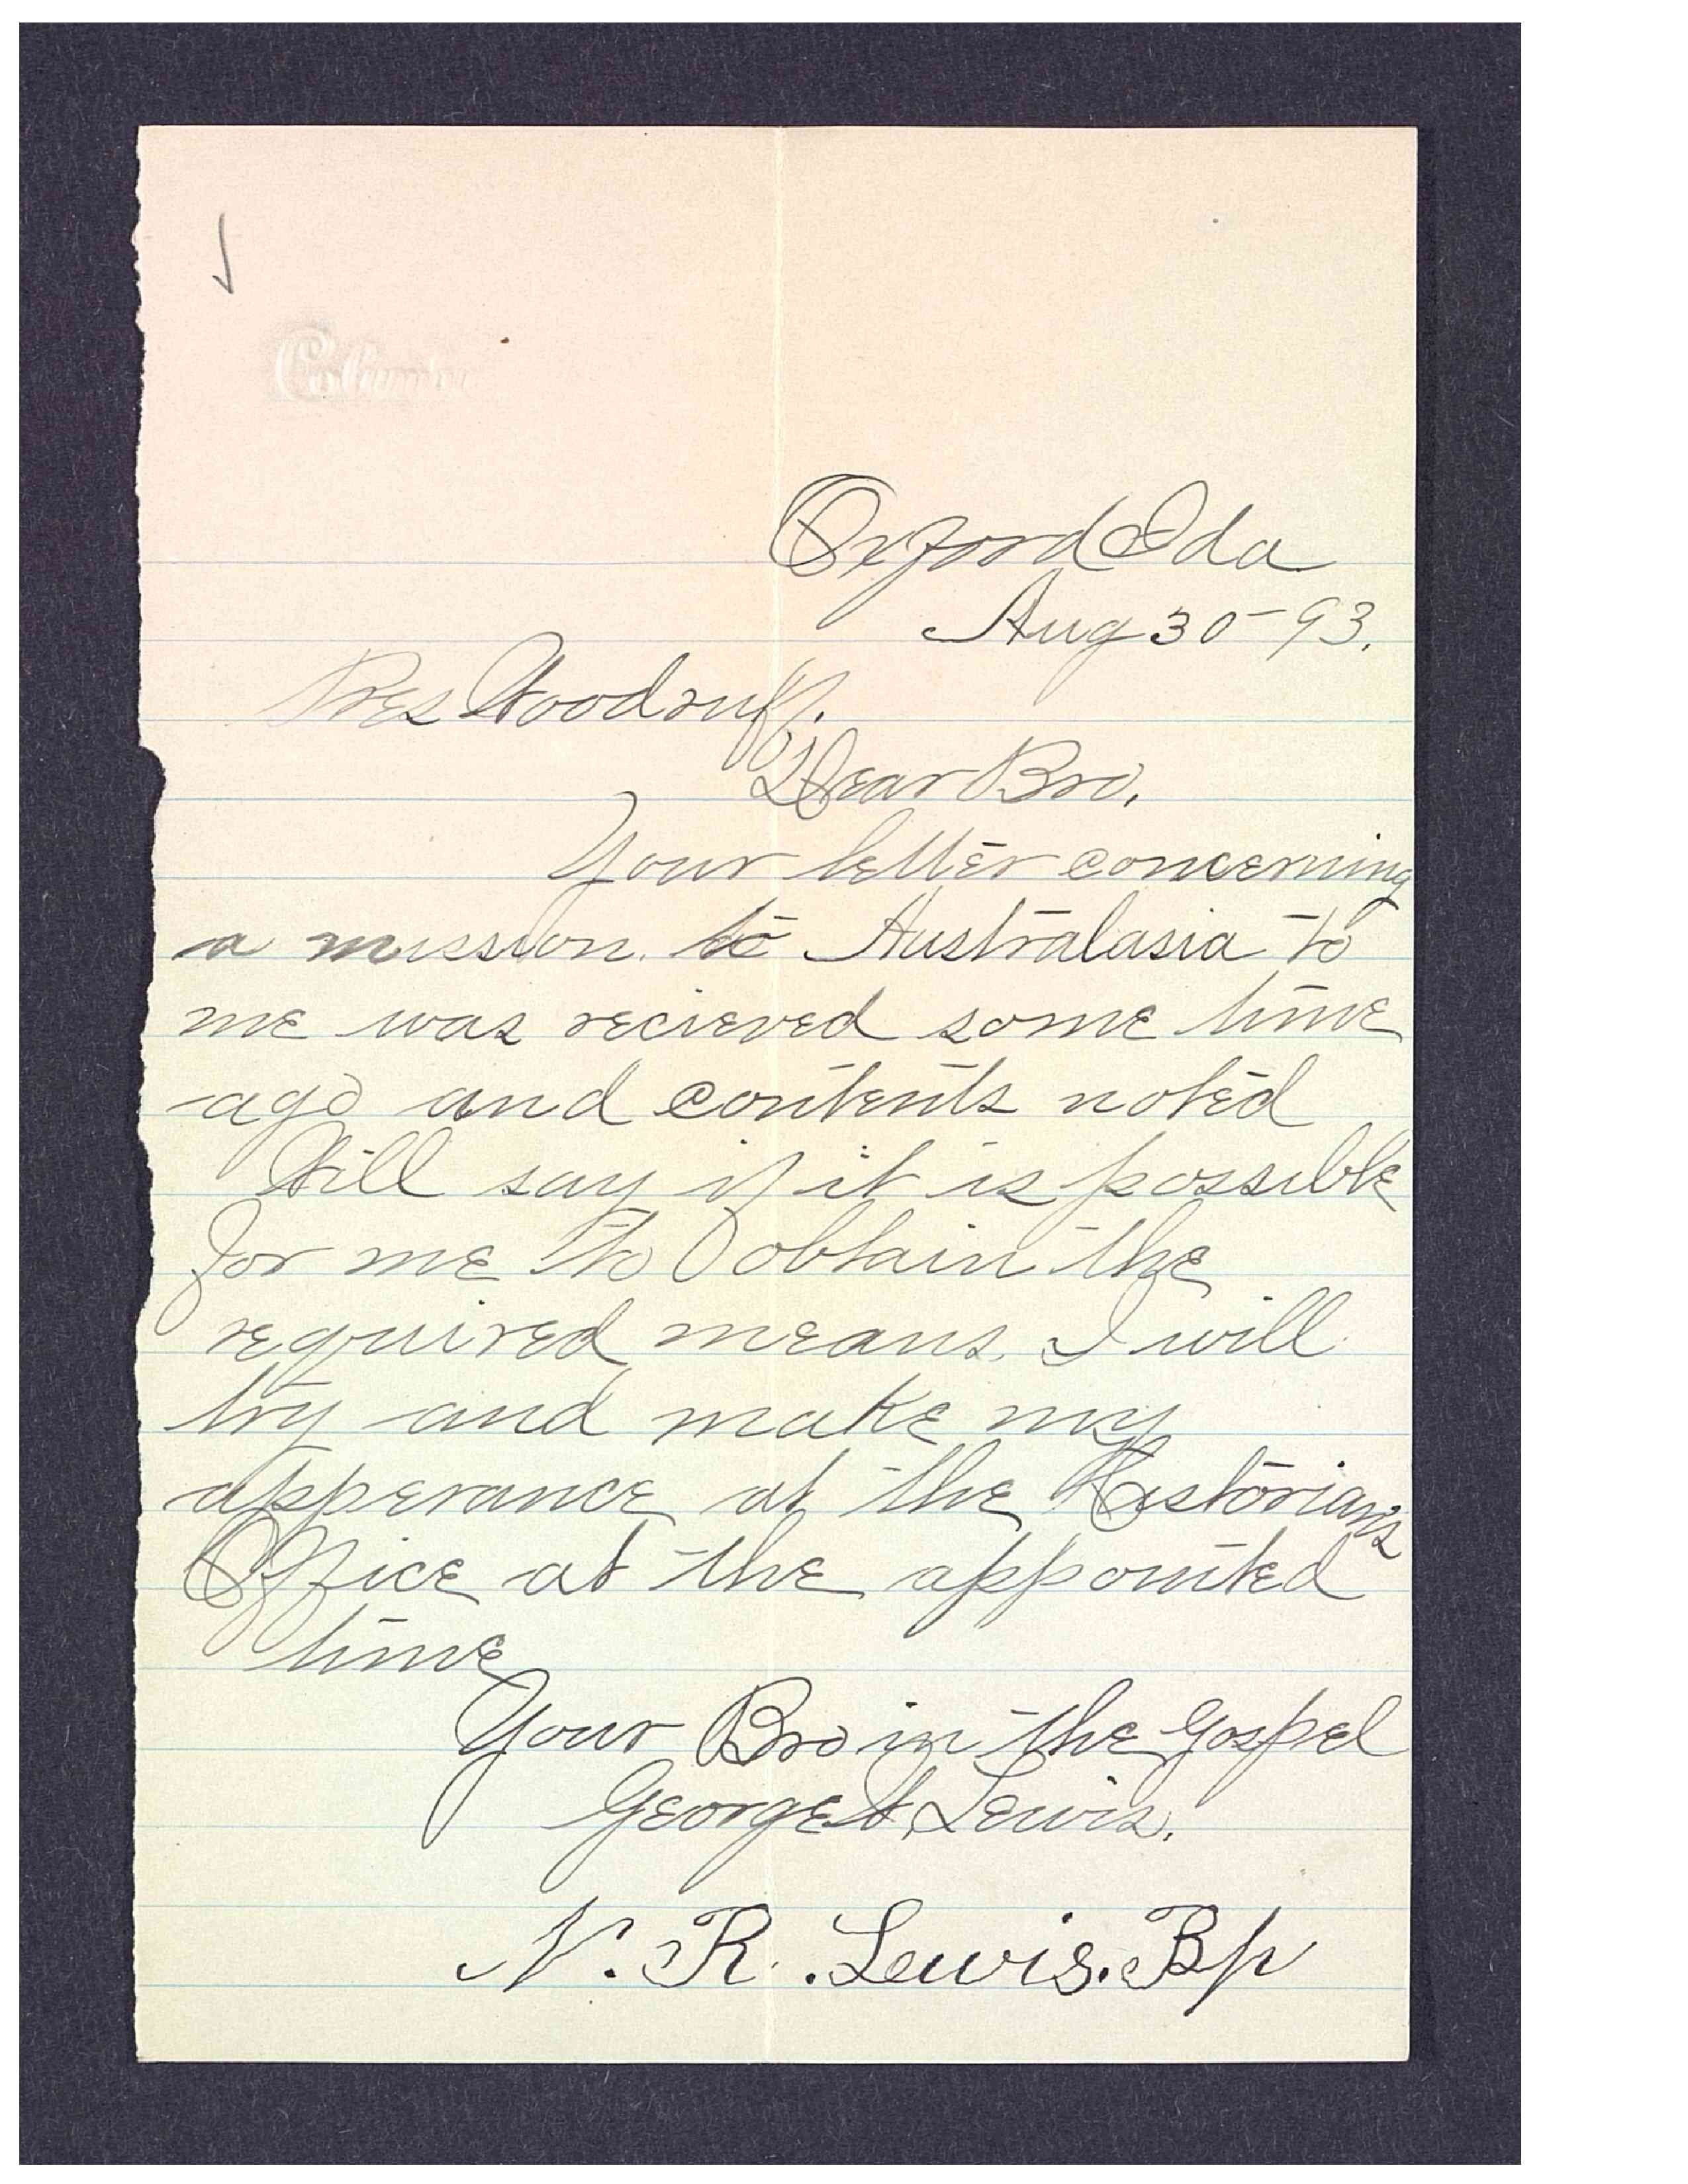 Columbia
Oxford Ida
Aug 30-93.
Pres Woodruff.
Dear Bro.
Your letter concerning
a mission to Australasia to
me was recieved some time
ago and contents noted
Will say if it is possible
for me to obtain the
required means. I will
try and make my
apperance at the Historian's
Office at the appointed
time
Your Bro in the Gospel
George Lewis.
N. R. Lewis. Bp